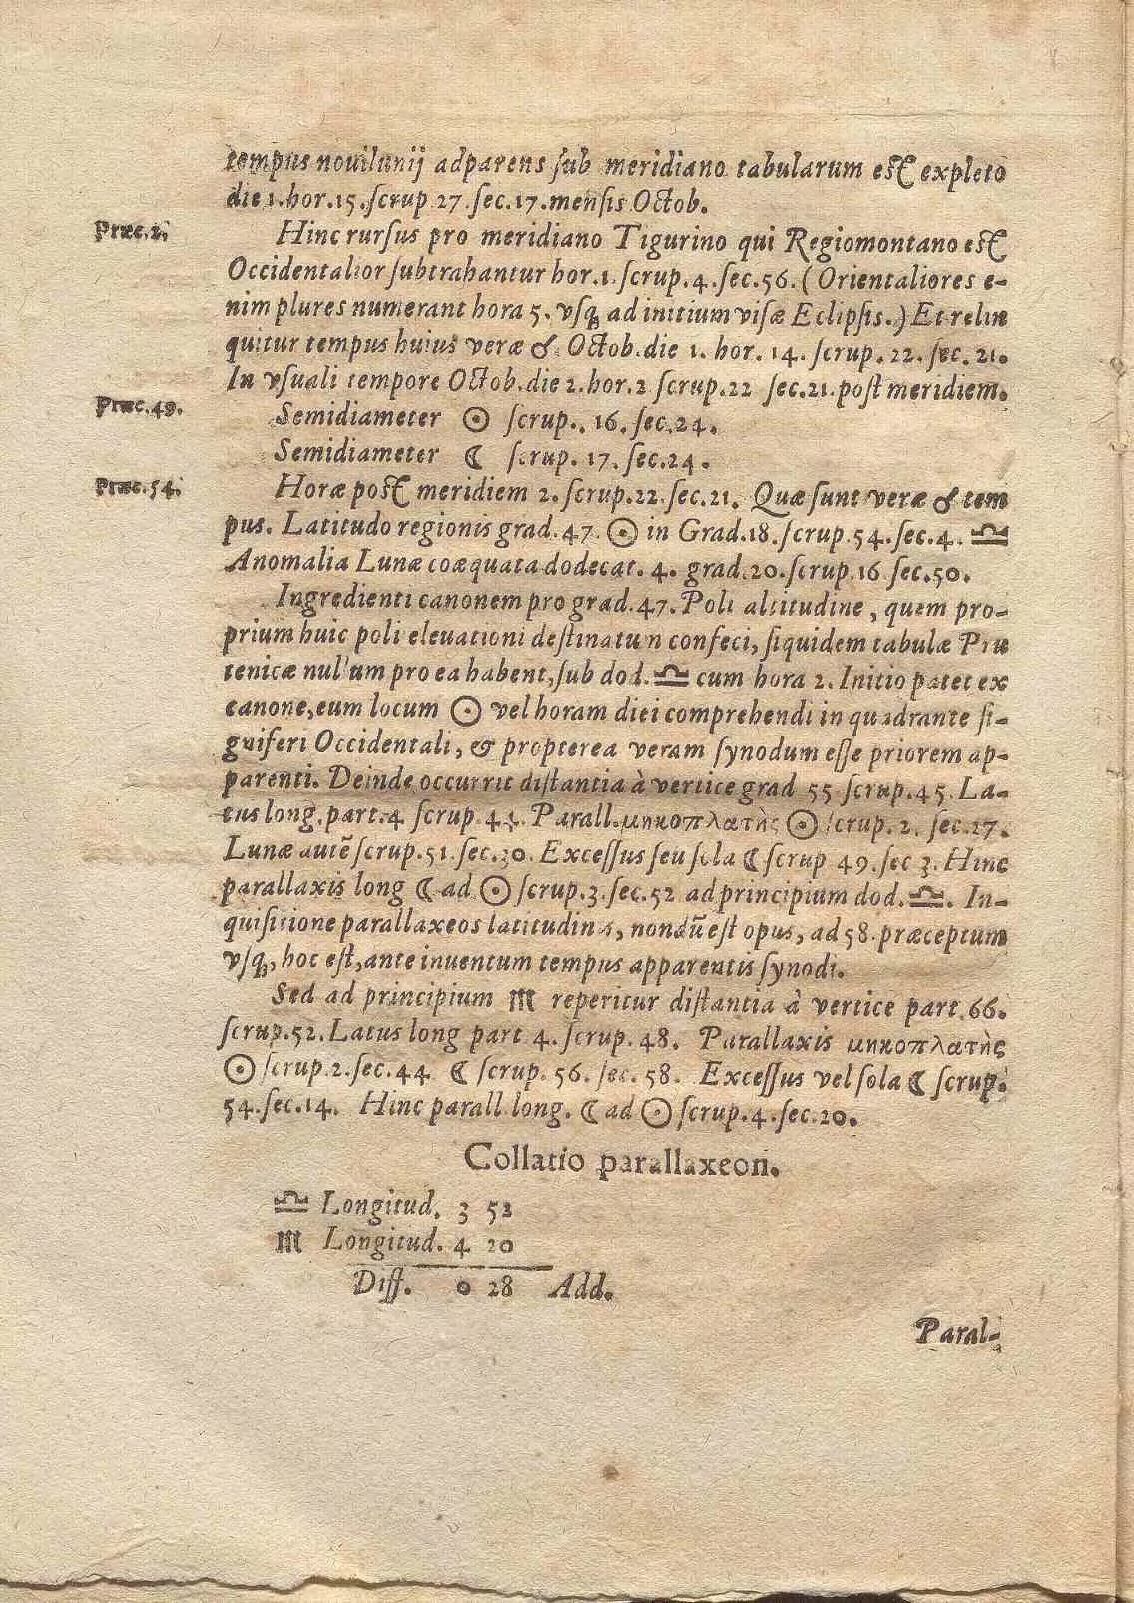 tempus nouilunij adparens ſub meridiano tabularum eſt expleto
die 1. hor. 15. ſcrup 27. ſec. 17. menſis Octob.
Præc. 2.
Hinc rurſus pro meridiano Tigurino qui Regiomontano eſt
Occidentalior ſubtrahantur hor. 1. ſcrup. 4. ſec. 56. (Orientaliores e-
nim plures numerant hora 5. vſq; ad initium viſæ Eclipſis.) Et relin
quitur tempus huius veræ ☌. Octob. die 1. hor. 14. ſcrup. 22. ſec. 21.
In vſuali tempore Octob. die 2. hor. 2 ſcrup. 22 ſec. 21. poſt meridiem.
Præc. 49.
Semidiameter ☉ ſcrup.. 16. ſec. 24.
Semidiameter ☾ ſcrup. 17. ſec. 24.
Præc. 54.
Horæ poſt meridiem 2. ſcrup. 22. ſec. 21. Quæ ſunt veræ ☌ tem
pus. Latitudo regionis grad. 47. ☉ in Grad. 18. ſcrup. 54. ſec. 4. ♎
Anomalia Lunæ coæquata dodecat. 4. grad. 20. ſcrup. 16. ſec. 50.
Ingredienti canonem pro grad. 47. Poli altitudine, quem pro-
prium huic poli eleuationi deſtinatun confeci, ſiquidem tabulæ Pru
tenicæ nullum pro ea habent, ſub dod. ♎ cum hora 2. Initio patet ex
canone, eum locum ☉ vel horam diei comprehendi in quadrante ſi-
gniferi Occidentali, & propterea veram ſynodum eſſe priorem ap-
parenti. Deinde occurrit diſtantia à vertice grad 55 ſcrup. 45. La-
tus long. part. 4 ſcrup. 44. Parall. μηκοπλατὴς ☉ ſcrup. 2. ſec. 27.
Lunæ autẽ ſcrup. 51. ſec. 30. Exceſſus ſeu ſola ☾ ſcrup 49. ſec 3. Hinc
parallaxis long ☾ ad ☉ ſcrup. 3. ſec. 52 ad principium dod. ♎. In-
quiſitione parallaxeos latitudinis, nondũ eſt opus, ad 58. præceptum
vſq;, hoc eſt, ante inuentum tempus apparentis ſynodi.
Sed ad principium ♏ reperitur diſtantia à vertice part. 66.
ſcrup. 52. Latus long part 4. ſcrup. 48. Parallaxis μηκοπλατὴς
☉ ſcrup. 2. ſec. 44 ☾ ſcrup. 56. ſec. 58. Exceſſus vel ſola ☾ ſcrup.
54. ſec. 14. Hinc parall. long. ☾ ad ☉ ſcrup. 4. ſec. 20.
Collatio parallaxeon.
♎ Longitud. 3 52
♏ Longitud. 4 20
Diff. 0 28 Add.
Paral-